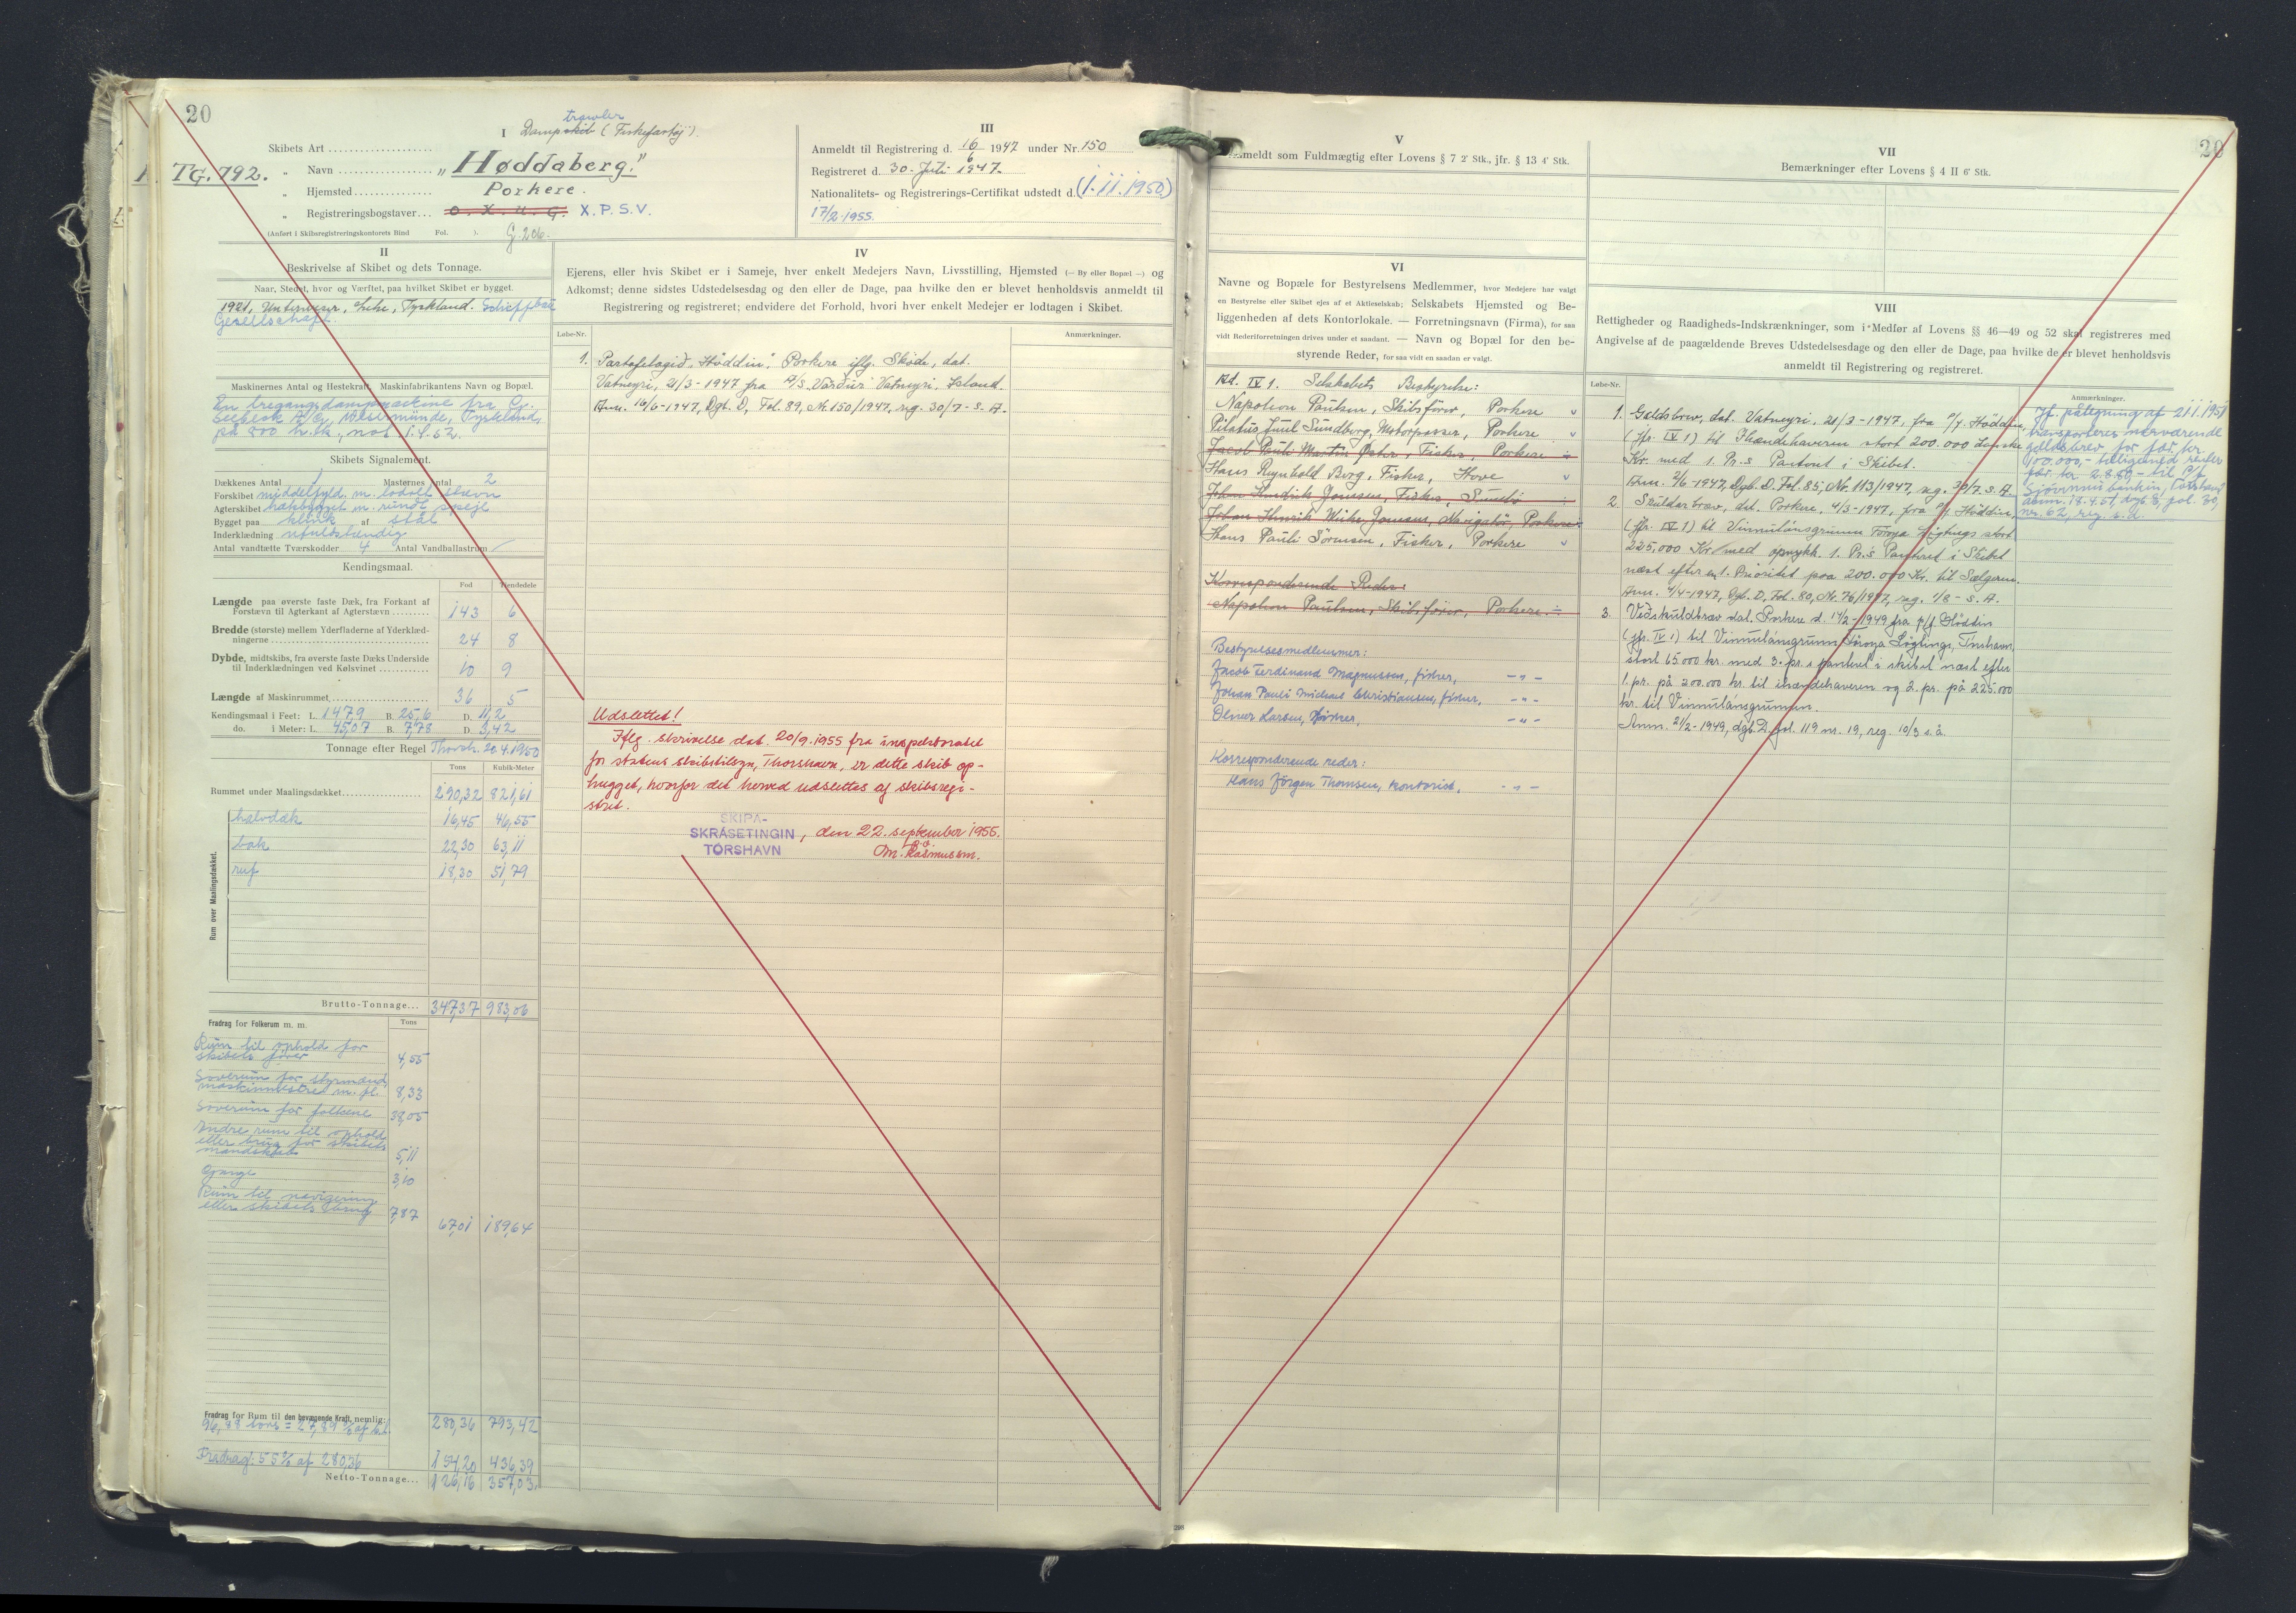 20
I
trawler
Dampskib (Fiskefartøj).
Skibets Art
TG. 792.
„ Navn „Høddaberg."
„ Hjemsted Porkere.
„ Registreringsbogstaver O. X. U. G. X.P.S.V.
(Anført i Skibsregistreringskontorets Bind Fol. ).
III
Anmeldt til Registrering d. 16/6 1947 under Nr. 150
Registreret d. 30. Juli 1947.
Nationalitets- og Registrerings-Certifikat udstedt d. (1.11.1950)
17/2.1955.
II
Beskrivelse af Skibet og dets Tonnage.
Naar, Stedet, hvor og Værftet, paa hvilket Skibet er bygget.
1921, Unterweser, Lehe, Tyskland. Schiffbau
Gesellschaft.
Maskinernes Antal og Hestekraft, Maskinfabrikantens Navn og Bopæl.
En tregangsdampmaskine fra G.
Seebeck A/G, Wesermünde, Tyskland,
på 800 h.k.,
Skibets Signalement.
Dækkenes Antal 1 Masternes Antal 2
Forskibet middelfyld. m. lodret stævn
Agterskibet hækbygget m. rundt spejl
Bygget paa klink af stål
Inderklædning ufuldstændig
Antal vandtætte Tværskodder 4 Antal Vandballastrum
Kendingsmaal.
Fod Tiendedele
Længde paa øverste faste Dæk, fra Forkant af
Forstævn til Agterkant af Agterstævn 143 6
Bredde (største) mellem Yderfladerne af Yderklæd-
ningerne 24 8
Dybde, midtskibs, fra øverste faste Dæks Underside
til Inderklædningen ved Kølsvinet 10 9
Længde af Maskinrummet 36 5
Kendingsmaal i Feet: L. 147,9 B. 25,6 D. 11,2
do. i Meter: L. 45,07 B. 7,78 D. 3,42
Tonnage efter Regel Thorsh. 20.4.1950
Tons Kubik-Meter
Rummet under Maalingsdækket 290,32 821,61
Rum over Maalingsdækket.
halvdæk 16,45 46,55
bak 22,30 63,11
ruf 18,30 51,79
Brutto-Tonnage 347,37 983,06
Fradrag for Folkerum m. m. Tons
Rum til ophold for
skibets fører 4,55
Soverum for styrmænd,
maskinmestre m. fl. 8,33
Soverum for folkene 38,05
Andre rum til ophold
eller brug for skibets
mandskab 5,11
Gange 3,10
Rum til navigering
eller skibets brug 7,87 67,01 189,64
Fradrag for Rum til den bevægende Kraft, nemlig: 280,36 793,42
96,88 tons = 27,89 % af br.t.
Fradrag: 55 % af 280,36 154,20 436,39
Netto-Tonnage 126,16 357,03
IV
Ejerens, eller hvis Skibet er i Sameje, hver enkelt Medejers Navn, Livsstilling, Hjemsted (— By eller Bopæl —) og
Adkomst; denne sidstes Udstedelsesdag og den eller de Dage, paa hvilke den er blevet henholdsvis anmeldt til
Registrering og registreret; endvidere det Forhold, hvori hver enkelt Medejer er lodtagen i Skibet.
Løbe-Nr. Anmærkninger.
1. Partafelagið „Høddin", Porkere iflg. Skøde, dat.
Vatneyri, 21/3-1947 fra A/S. Vörður Vatneyri, Island.
Anm. 16/6-1947, Dgb. D, Fol. 89, Nr. 150/1947, reg. 30/7- s. A.
Udslettet!
Iflg. skrivelse dat. 20/9.1955 fra inspektoratet
for statens skibstilsyn, Thorshavn, er dette skib op-
hugget, hvorfor det herved udslettes af skibsregi-
stret.
SKIPA-
SKRÁSETINGIN, den 22. september 1955.
TÓRSHAVN
M. Rasmussen.
V
Anmeldt som Fuldmægtig efter Lovens § 7 2' Stk., jfr. § 13 4' Stk.
VI
Navne og Bopæle for Bestyrelsens Medlemmer, hvor Medejere har valgt
en Bestyrelse eller Skibet ejes af et Aktieselskab; Selskabets Hjemsted og Be-
liggenheden af dets Kontorlokale. — Forretningsnavn (Firma), for saa
vidt Rederiforretningen drives under et saadant. — Navn og Bopæl for den be-
styrende Reder, for saa vidt en saadan er valgt.
Ad. IV 1. Selskabets Bestyrelse:
Napoleon Paulsen, Skibsfører, Porkere
Pilatus Juul Sundberg, Motorpasser, Porkere
Jacob Pauli Martin Øster, Fisker, Porkere
Hans Reynhold Berg, Fisker, Hove
Johan Hendrik Joensen, Fisker, Sumbø
Johan Henrik Joensen, Navigatør, Porkere
Hans Pauli Sörensen, Fisker, Porkere
Korresponderende Reder:
Napoleon Paulsen, Skibsfører, Porkere.
Bestyrelsesmedlemmer:
Jacob Ferdinand Magnussen, fisker, - " -
Johan Pauli Michael Christiansen, fisker, - " -
Olmar Larsen, fisker, - " -
Korresponderende reder:
Hans Jörgen Thomsen, kontorist, - " -
20
VII
Bemærkninger efter Lovens § 4 II 6' Stk.
VIII
Rettigheder og Raadigheds-Indskrænkninger, som i Medfør af Lovens §§ 46—49 og 52 skal registreres med
Angivelse af de paagældende Breves Udstedelsesdage og den eller de Dage, paa hvilke de er blevet henholdsvis
anmeldt til Registrering og registreret.
Løbe-Nr. Anmærkninger.
1. Gældsbrev, dat. Vatneyri, 21/3-1947, fra P/f Høddin,
(jfr. IV 1) til Ihændehaveren stort 200.000 danske
Kr. med 1. Pr.s Panteret i Skibet.
Anm. 9/6 1947, Dgb. D. Fol. 85, Nr. 113/1947, reg. 30/7. s. A.
2. Skuldarbræv, dat. Porkere, 4/3-1947, fra P/f. Høddin,
(jfr. IV 1) til Vinnulánsgrunn Føroya Løgtings stort
225,000 Kr. med oprykk. 1. Pr.s Panteret i Skibet
næst efter en 1. Prioritet paa 200.000 Kr. til Sælgeren.
Anm. 4/4-1947, Dgb. D, Fol. 80, Nr. 76/1947, reg. 1/8 - s. A.
3. Veðskuldbræv dat. Porkere d. 14/2-1949 fra p/f Høddin
(jfr. IV 1) til Vinnulánsgrunn Føroya Løgtings, Tórshavn,
stort 65.000 kr. med 3. pr. s panteret i skibet næst efter
1. pr. på 200.000 kr. til ihændehaveren og 2. pr. på 225.000
kr. til Vinnulánsgrunnin.
Anm. 21/2-1949, dgb. D. fol. 119 nr. 19, reg. 10/3 s. å.
Jf. påtegning af 21.1.1951
transporteres nærværende
gældsbrev for før kr.
100.000,- tilligemed renter
fra 2.8.50 - til P/f
Sjóvinnubankin, Tórshavn
anm. 18.4.51, dgb 8, fol. 30,
nr. 62, reg. s.d.